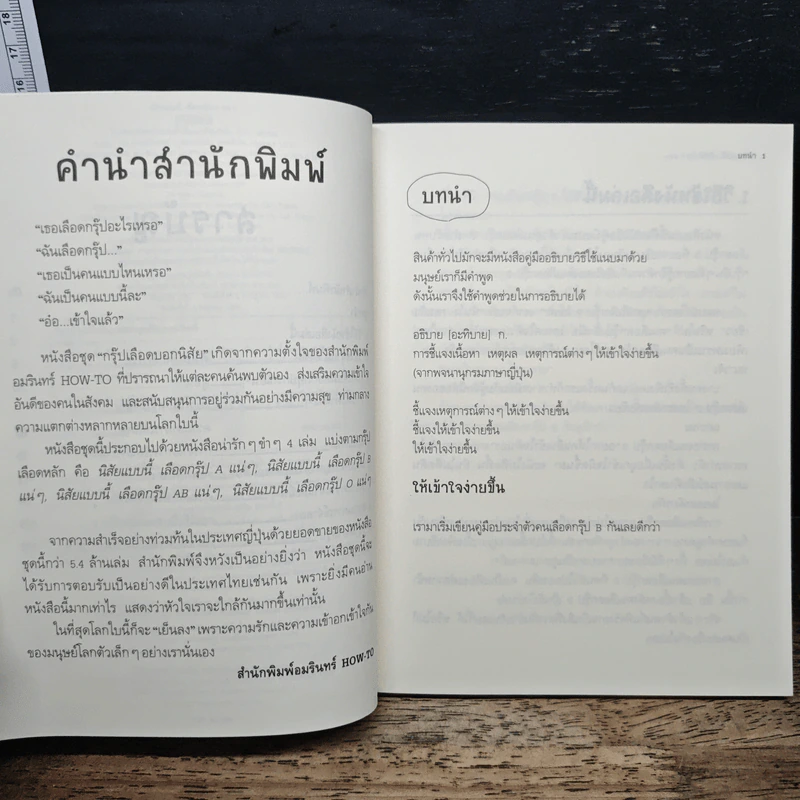 คำนำสำนักพิมพ์
“เธอเลือดกรุ๊ปอะไรเหรอ”
“ฉันเลือดกรุ๊ป...”
“เธอเป็นคนแบบไหนเหรอ”
“ฉันเป็นคนแบบนี้ละ”
“อ๋อ...เข้าใจแล้ว”
หนังสือชุด “กรุ๊ปเลือดบอกนิสัย” เกิดจากความตั้งใจของสำนักพิมพ์
อมรินทร์ HOW-TO ที่ปรารถนาให้แต่ละคนค้นพบตัวเอง ส่งเสริมความเข้าใจ
อันดีของคนในสังคม และสนับสนุนการอยู่ร่วมกันอย่างมีความสุข ท่ามกลาง
ความแตกต่างหลากหลายบนโลกใบนี้
หนังสือชุดนี้ประกอบไปด้วยหนังสือน่ารักๆ ขำๆ 4 เล่ม แบ่งตามกรุ๊ป
เลือดหลัก คือ นิสัยแบบนี้ เลือดกรุ๊ป A แน่ๆ, นิสัยแบบนี้ เลือดกรุ๊ป B
แน่ๆ, นิสัยแบบนี้ เลือดกรุ๊ป AB แน่ๆ, นิสัยแบบนี้ เลือดกรุ๊ป O แน่ๆ
จากความสำเร็จอย่างท่วมท้นในประเทศญี่ปุ่นด้วยยอดขายของหนังสือ
ชุดนี้กว่า 5.4 ล้านเล่ม สำนักพิมพ์จึงหวังเป็นอย่างยิ่งว่า หนังสือชุดนี้จะ
ได้รับการตอบรับเป็นอย่างดีในประเทศไทยเช่นกัน เพราะยิ่งมีคนอ่าน
หนังสือนี้มากเท่าไร แสดงว่าหัวใจเราจะใกล้กันมากขึ้นเท่านั้น
ในที่สุดโลกใบนี้ก็จะ “เย็นลง” เพราะความรักและความเข้าอกเข้าใจกัน
ของมนุษย์โลกตัวเล็กๆ อย่างเรานั่นเอง
สำนักพิมพ์อมรินทร์ HOW-TO
บทนำ
บทนำ
สินค้าทั่วไปมักจะมีหนังสือคู่มืออธิบายวิธีใช้แนบมาด้วย
มนุษย์เราก็มีคำพูด
ดังนั้นเราจึงใช้คำพูดช่วยในการอธิบายได้
อธิบาย [อะทิบาย] ก.
การชี้แจงเนื้อหา เหตุผล เหตุการณ์ต่างๆ ให้เข้าใจง่ายขึ้น
(จากพจนานุกรมภาษาญี่ปุ่น)
ชี้แจงเหตุการณ์ต่างๆ ให้เข้าใจง่ายขึ้น
ชี้แจงให้เข้าใจง่ายขึ้น
ให้เข้าใจง่ายขึ้น
ให้เข้าใจง่ายขึ้น
เรามาเริ่มเขียนคู่มือประจำตัวคนเลือดกรุ๊ป B กันเลยดีกว่า
18
17
16